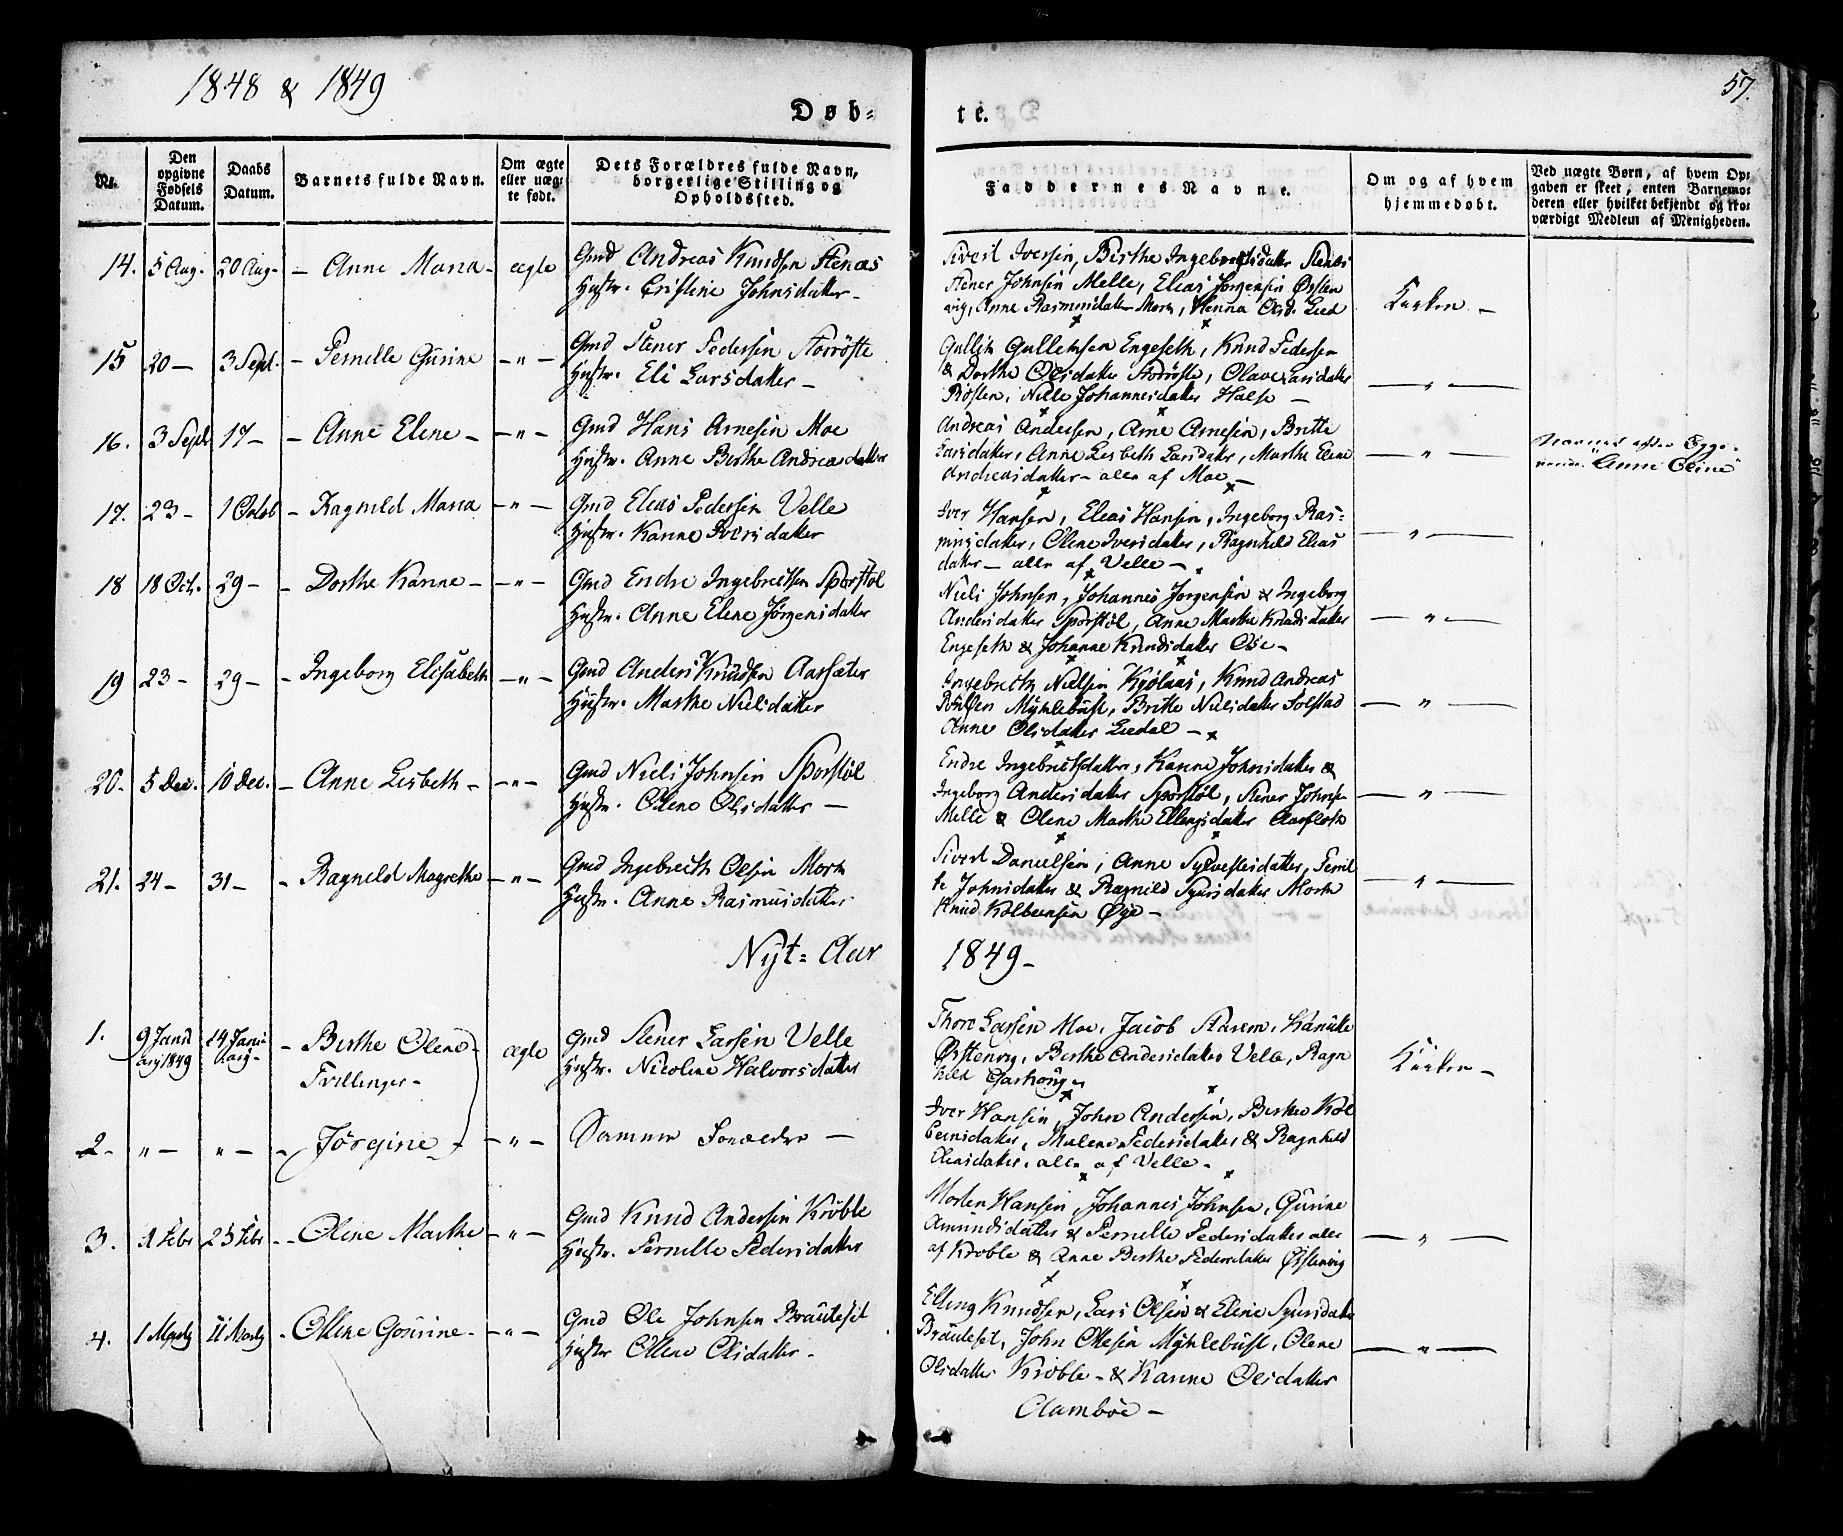 1848 & 1849
57.
Døb-
te.
Nr.
Den opgivne Fødsels Datum.
Daabs Datum.
Barnets fulde Navn.
Om ægte eller uægte født.
Dets Forældres fulde Navn, borgerlige Stilling og Opholdssted.
Faddernes Navne.
Om og af hvem hjemmedøbt.
Ved uægte Børn, af hvem Opgaben er skeet, enten Barnemoderen eller hvilket bekjendt og troværdigt Medlem af Menigheden.
14. 5 Aug. 20 Aug. – Anne Maria – ægte
Gmd Andreas Knudsen Stenæs
Hustr. Cristine Johnsdatter –
Sivert Iversen, Birthe Ingebrigtsdatter Stenæs
Stener Johnsen Melle, Elias Jørgensen Østen
vig, Anne Rasmusdatter Mork, Hanna Olsd. Lied
Kirken –
15 20 – 3 Sept. – Pernille Gurine – „ –
Gmd Stener Pedersen Storöfte
Hustr. Eli Larsdatter –
Gullik Gulliksen Engeseth, Knud Pedersen
& Dorthe Olsdatter Storöfte, Olave Larsdatter
Røften, Nille Johannesdatter Halse –
– „ –
16. 3 Septr 17 – – Anne Eline – – „ –
Gmd Hans Arnesen Moe
Hustr. Anne Birthe Andreasdatter
Andreas Andersen, Arne Arnesen, Britte
Larsdatter, Anne Lisbeth Larsdatter, Marthe Eline
Andreasdatter – alle af Moe –
– „ –
"Anne Eline"
17. 23 – 1 Octob – Ragnild Maria – „ –
Gmd Elias Pedersen Velle
Hustr. Karine Iversdatter
Iver Hansen, Elias Hansen, Ingeborg Ras-
musdatter, Oline Iversdatter, Ragnhild Elias
datter – alle af Velle –
– „ –
18 18 Oct. 29 – – Dorthe Karine – – „ –
Gmd Endre Ingebretsen Sporstøl
Hustr. Anne Eline Jørgensdatter
Niels Johnsen, Johannes Jørgensen & Ingeborg
Andersdatter Sporstøl, Anne Marthe Knudsdatter
Engeseth & Johanne Knudsdatter Øie –
– „ –
19 23 – 29 – – Ingeborg Elisabeth – „ –
Gmd Anders Knudsen Aarsæter
Hustr. Marthe Nielsdatter
Ingebreth Nielsen Kjölaas, Knud Andreas
Mÿklebust, Britte Nielsdatter Solstad
Anne Olsdatter Liedal –
– „ –
20. 5 Dec. 10 Dec. – Anne Lisbeth – – „ –
Gmd Niels Johnsen Sporstøl
Hustr. Oline Olsdatter –
Endre Ingebretsdatter, Karine Johnsdatter &
Ingeborg Andersdatter Sporstøl, Stener Johns-
Melle & Oline Marthe Ellingsdatter Aarflot
– „ –
21. 24 – 31 – – Ragnild Magrethe – „ –
Gmd Ingebreth Olsen Mork
Hustr. Anne Rasmusdatter
Sivert Danielsen, Anne Sylvestersdatter, Pernil
le Johnsdatter & Ragnild Sjursdatter Mork
Knud Kolbeensen Øye –
– „ –
Nyt-Aar 1849 –
1. 9 Janu
ary 1849 14 Janu
ary – – Birthe Oline –
Tvillinger –
ægte
Gmd Stener Larsen Velle
Hustr. Nicoline Halvorsdatter
Thore Larsen Moe, Jacob Starem, Kanutte
Østenvig, Birthe Andersdatter Velle, Ragn
hild
Kirken –
2 – „ – „ – – Jørgine – – „ –
Samme Forældre –
Iver Hansen, John Andersen, Birthe Kol
beensdatter, Malene Pedersdatter & Ragnhild
Eliasdatter, alle af Velle –
3. 1 Febr 25 Febr – Oline Marthe – „ –
Gmd Knud Andersen Kröble
Hustr. Pernille Pedersdatter
Morten Hansen, Johannes Johnsen, Gurine
Amundsdatter & Pernille Pedersdatter alle
af Kroble & Anne Birthe Pedersdatter Østenvig
– „ –
4. 1 Marty 11 Marty – Oline Gourine – – „ –
Gmd Ole Johnsen Brauteset
Hustr Oline Olsdatter –
Elling Knudsen, Lars Olsen & Eline Sjursdatter
Brauteset, John Olesen Mÿklebust, Oline
Olsdatter Kroble – & Karine Olsdatter
Aamböe –
– „ –